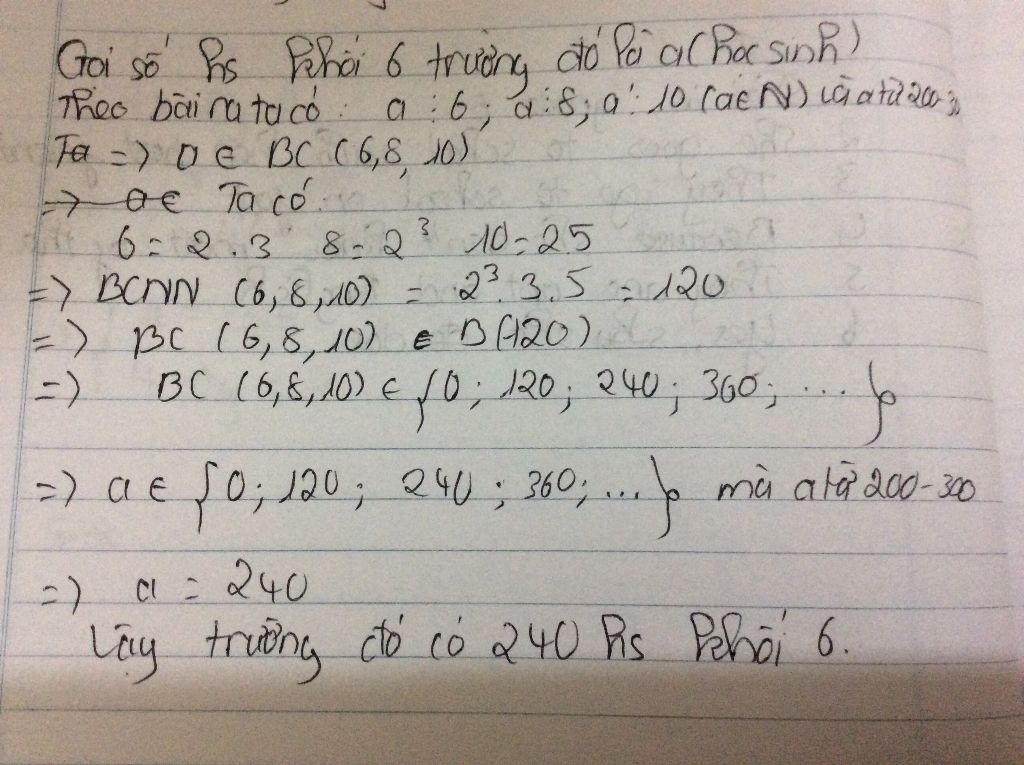 Gọi số hs khối 6 trường đó là a (học sinh)
Theo bài ra ta có: a ⋮ 6; a ⋮ 8; a ⋮ 10 (a ∈ N) và a từ 200-
Ta => a ∈ BC (6,8,10)
=> a ∈ Ta có.
6 = 2.3 8 = 2³ 10 = 2.5
=> BCNN (6,8,10) = 2³.3.5 = 120
=> BC (6,8,10) ∈ B(120)
=> BC (6,8,10) ∈ {0; 120; 240; 360; ...}
=> a ∈ {0; 120; 240; 360; ...} mà a từ 200-300
=> a = 240
Vậy trường đó có 240 hs khối 6.